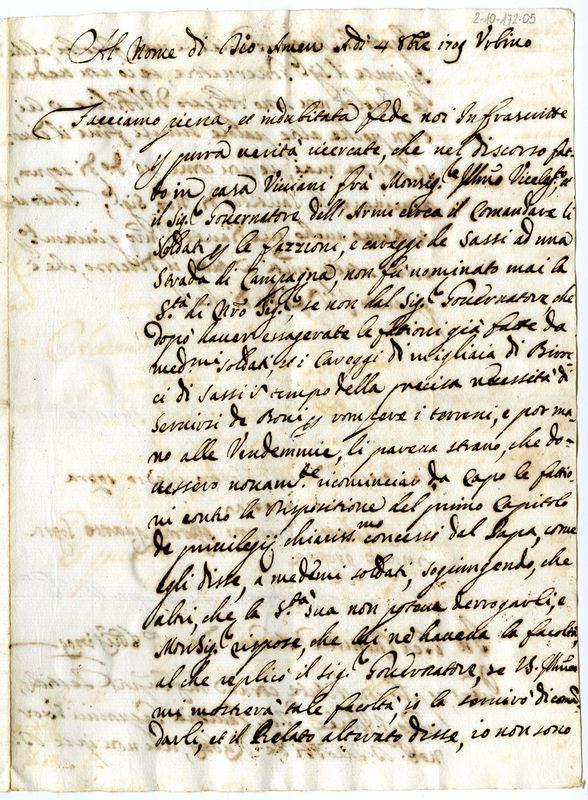 2-10-172-05
Al Nome di Dio Amen Adi 4 8bre 1705 Urbino
Facciamo piena, et indubitata fede noi Infrascritte
p purra verità ricercate, che nel discorso fat-
to in casa Viviani frà Monsig.re Illmo Viceleg.to et
il Sig.r Governatore dell'Armi circa il Comandare li
Soldati p le fazzioni, e careggi de Sassi ad una
Strada di Campagna, non fù nominato mai la
S.tà di Nro Sig.re se non dal Sig.r Governatore che
dopò haver essagerate le fationi già fatte da
med.mi soldati, et i Careggi di migliaia di Biroc
ci di Sassi in tempo della precisa necessità di
Servirsi de Bovi p rompere i terreni, e por ma-
no alle Vendemmie, li pareva strano, che do-
vessero novam.te ricominciar da Capo le fattio
ni contro la Disposizione del primo Capitolo
de privilegij chiariss.mo concessi dal Papa, come
egli disse, a medemi soldati, sogiungendo, che
altri, che la S.tà Sua non poteva derrogarli, e
MonSig.re rispose, che lui ne haveva la facoltà,
al che replicò il Sig.r Governatore, se VS. Illma
mi mostrerà tale facoltà, io la servirò di coman
darli, et il Prelato alterato disse, io non sono